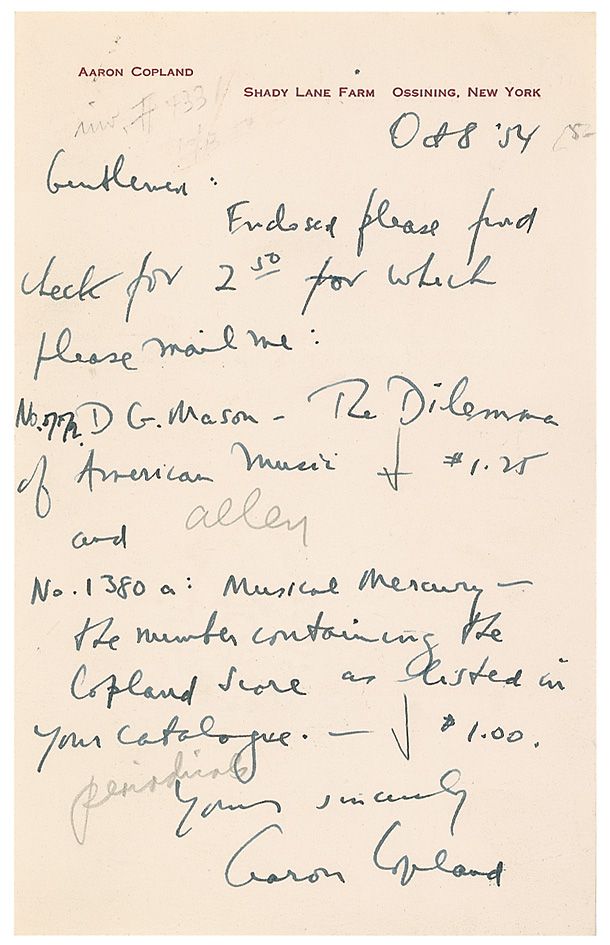 AARON COPLAND
SHADY LANE FARM OSSINING, NEW YORK
inv. # 733
Oct 8 '54
Gentlemen:
Enclosed please find
check for 2 50 for which
please mail me:
No. D G. Mason – The Dilemma
of American Music $1.25
alley
and
No. 1380 a: Musical Mercury —
the number containing the
Copland Score as listed in
your catalogue. — $1.00.
periodicals
Yours sincerely
Aaron Copland